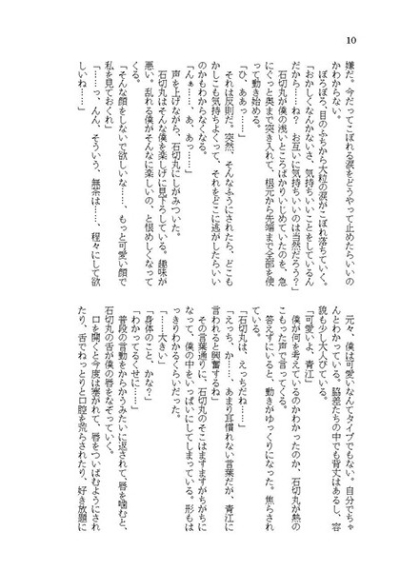 10
嫌だ。今だってこぼれる涙をどうやって止めたらいいの
かわからない。
ぼろぼろ、目のふちから大粒の涙がこぼれ落ちていく。
「おかしくなんかないさ、気持ちいいことをしているん
だから……ね？　お互いに気持ちいいのは当然だろう？」
石切丸が僕の浅いところばかりいじめていたのを、急
にぐっと奥まで突き入れて、根元から先端まで全部を使
って動き始める。
「ひ、ああっ……」
それは反則だ。突然、そんなふうにされたら、どこも
かしこも気持ちよくって、それをどこに逃がしたらいい
のかもわからなくなる。
「んぁ……、あ、あっ……」
声を上げながら、石切丸にしがみついた。
石切丸はそんな僕を楽しげに見下ろしている。趣味が
悪い。乱れる僕がそんなに楽しいの、と恨めしくなって
くる。
「そんな顔をしないで欲しいな……、もっと可愛い顔で
私を見ておくれ」
「……っ、んん、そういう、無茶は……、程々にして欲
しいね……」
元々、僕は可愛いなんてタイプでもない。自分でちゃ
んとわかっている。脇差たちの中でも背丈はあるし、容
貌も少し大人びている。
「可愛いよ、青江」
僕が何を考えているのかわかったのか、石切丸が熱の
こもった声で言ってくる。
答えずにいると、動きがゆっくりになった。焦らされ
ている。
「石切丸は、えっちだねぇ……」
「えっち、か……、あまり耳慣れない言葉だが、青江に
言われると興奮するね」
その言葉通りに、石切丸のそこはますますがちがちに
なって、僕の中をいっぱいにしてしまっている。形もは
っきりわかるくらいだった。
「……大きい」
「身体のこと、かな？」
「わかってるくせに……」
普段の言動をからかうみたいに返されて、唇を噛むと、
石切丸の舌が僕の唇をなぞっていく。
口を開くと今度は塞がれて、唇をついばむようにされ
たり、舌でねっとりと口腔を荒らされたり、好き放題に